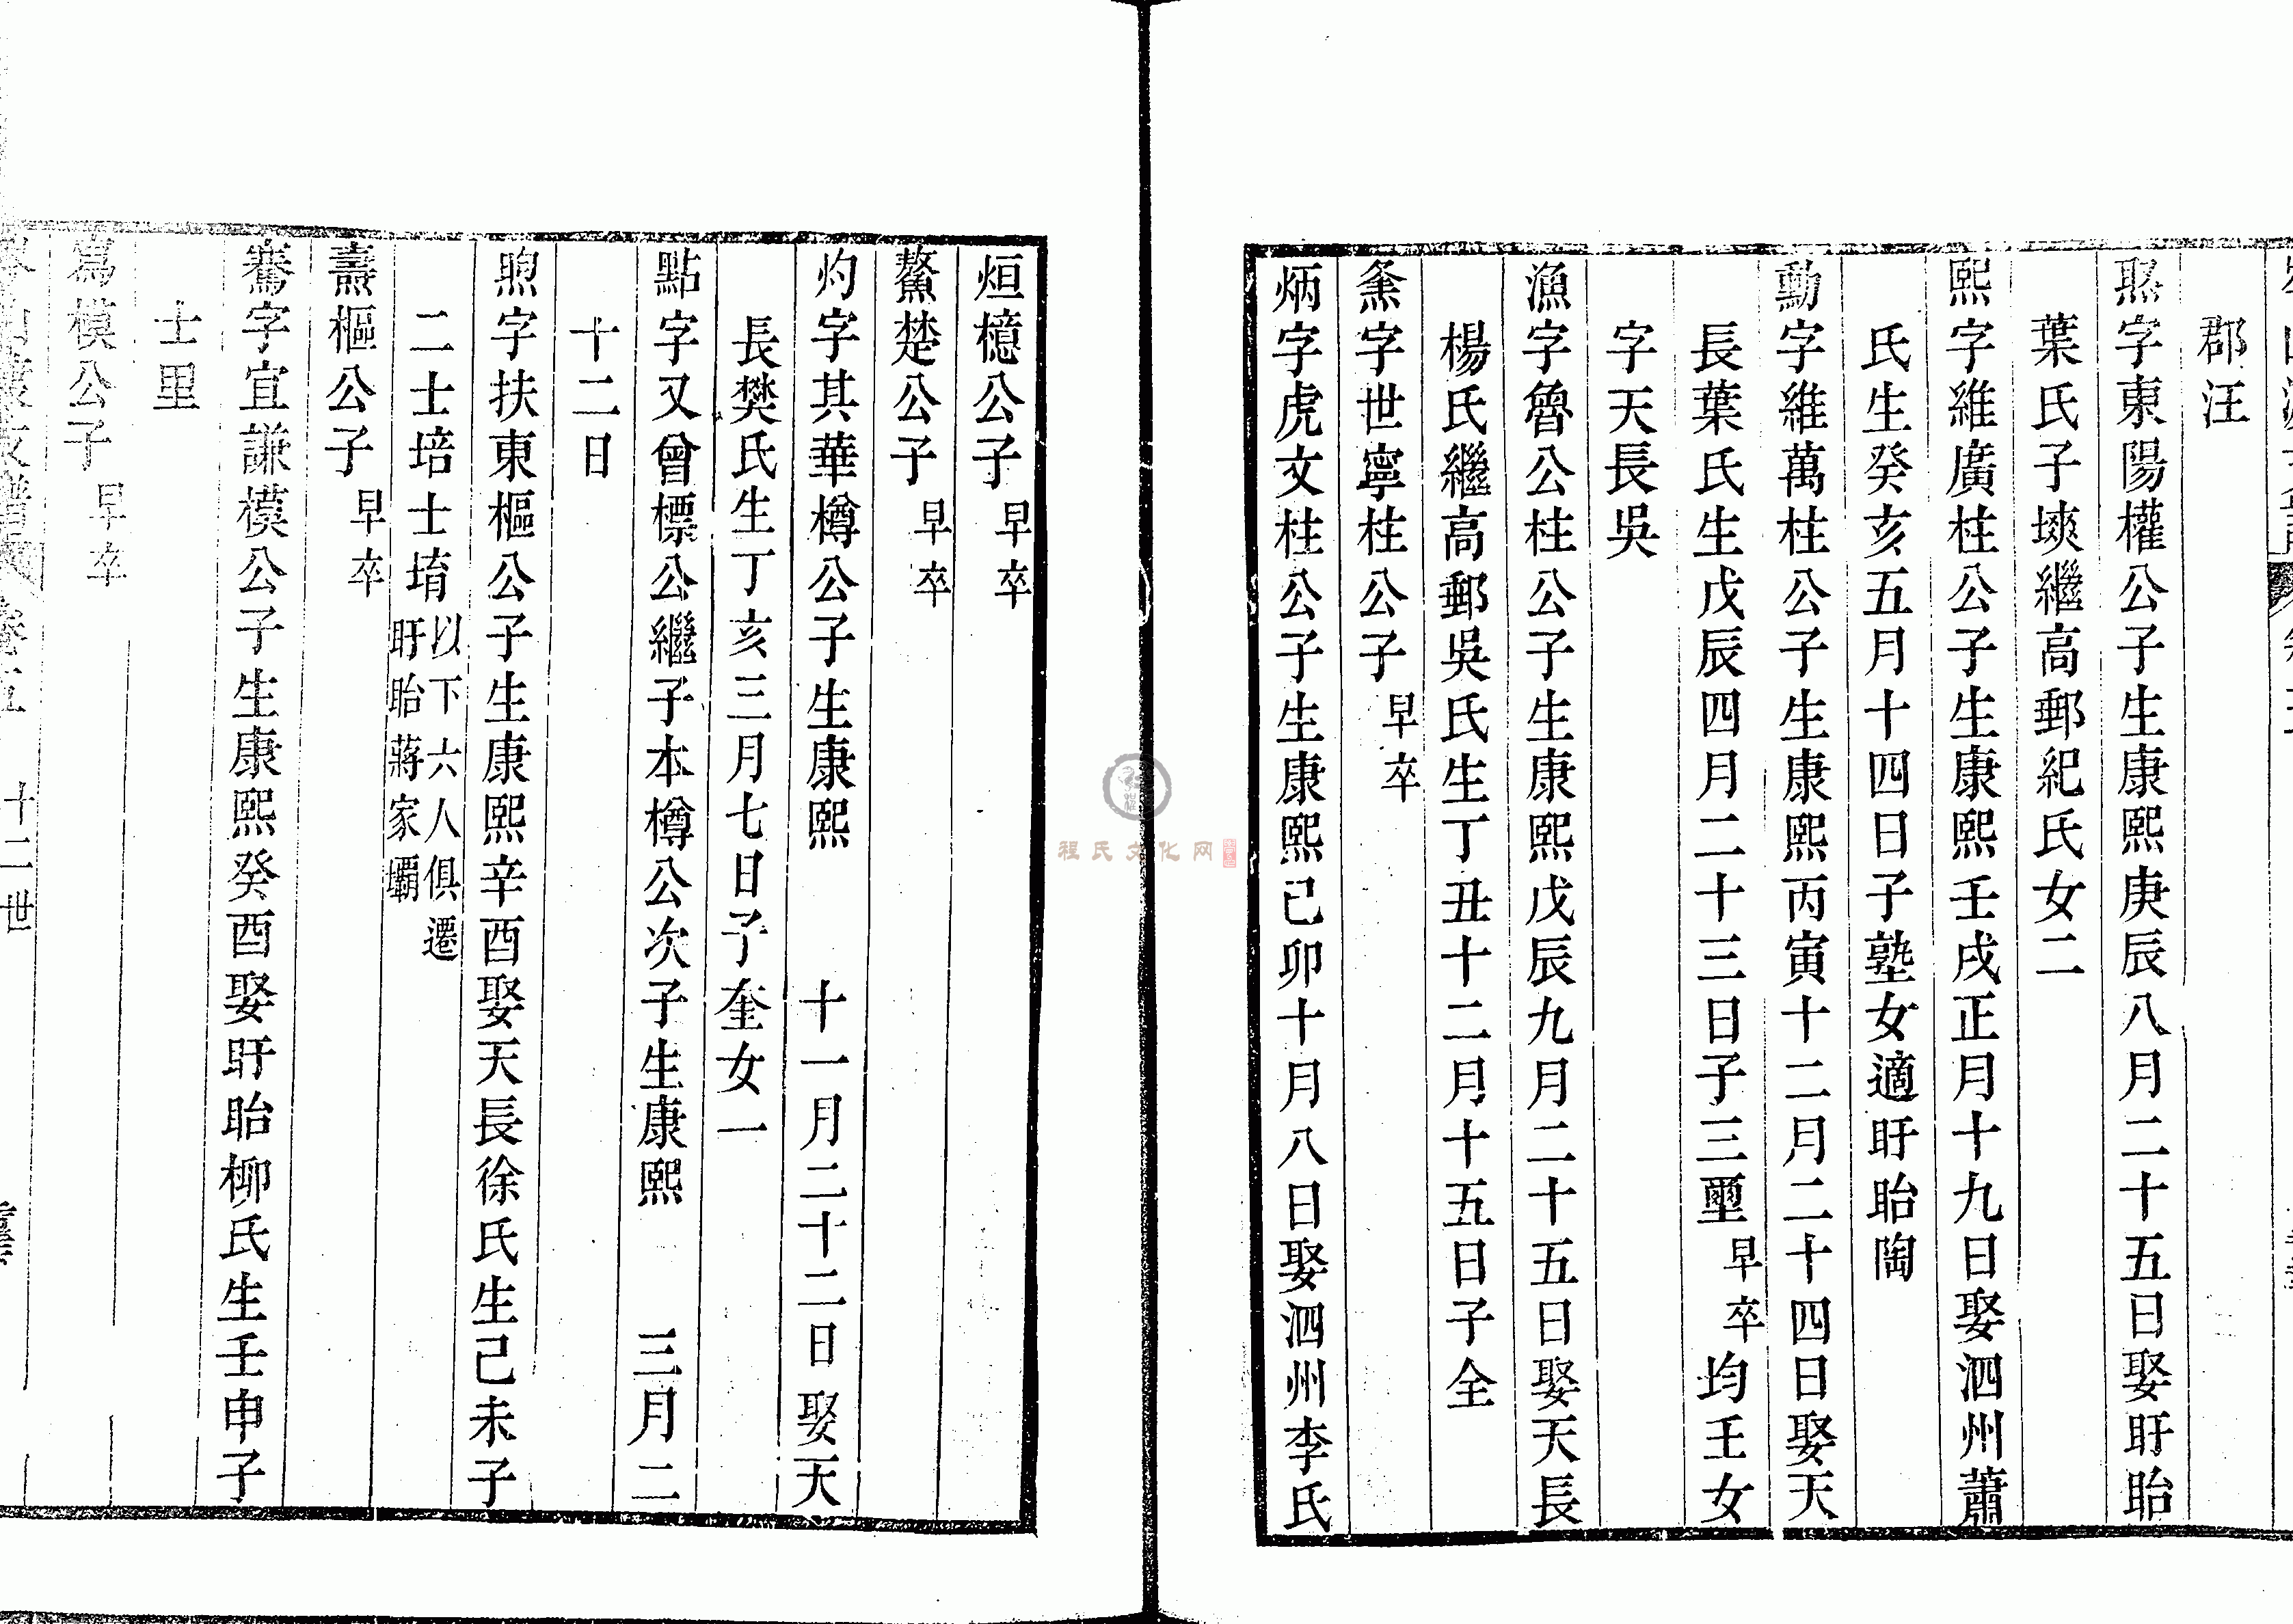 郡汪
字東陽權公子生康熙庚辰八月二十五日娶盱眙
葉氏子塽繼高郵紀氏女二
熙字維廣柱公子生康熙壬戌正月十九日娶泗州蕭
氏生癸亥五月十四日子塾女適盱眙陶
勳字維萬柱公子生康熙丙寅十二月二十四日娶天
長葉氏生戊辰四月二十三日子三壐早卒均壬女
字天長吳
漁字魯公柱公子生康熙戊辰九月二十五日娶天長
楊氏繼高郵吳氏生丁丑十二月十五日子全
字世寧柱公子早卒
炳字虎文柱公子生康熙己卯十月八日娶泗州李氏
烜檍公子早卒
鰲楚公子早卒
灼字其華樽公子生康熙 十一月二十二日娶天
長樊氏生丁亥三月七日子奎女一
點字又曾標公繼子本樽公次子生康熙 三月二
十二日
煦字扶東樞公子生康熙辛酉娶天長徐氏生己未子
二士培士堉以下六人俱遷盱眙蔣家壩
燾樞公子早卒
字宜謙模公子生康熙癸酉娶盱眙柳氏生壬申子
士里
模公子早卒
卷五 十二世
程氏文化网